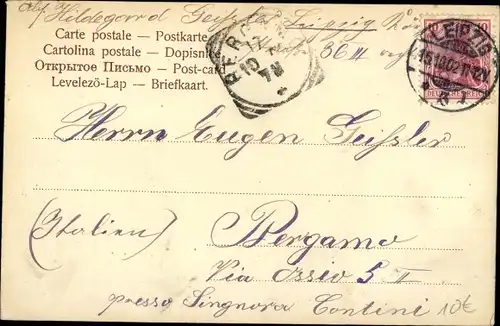 Abs. Hildegard Geißler, Leipzig
Carte postale — Postkarte
Cartolina postale — Dopisnice
36 III
Открытое Письмо — Post-card
Levelező-Lap — Briefkaart.
LEIPZIG
BERGAMO
Herrn Eugen Geißler
(Italien)
Bergamo
Via Ossio 5 I
presso Singnora Contini
10€